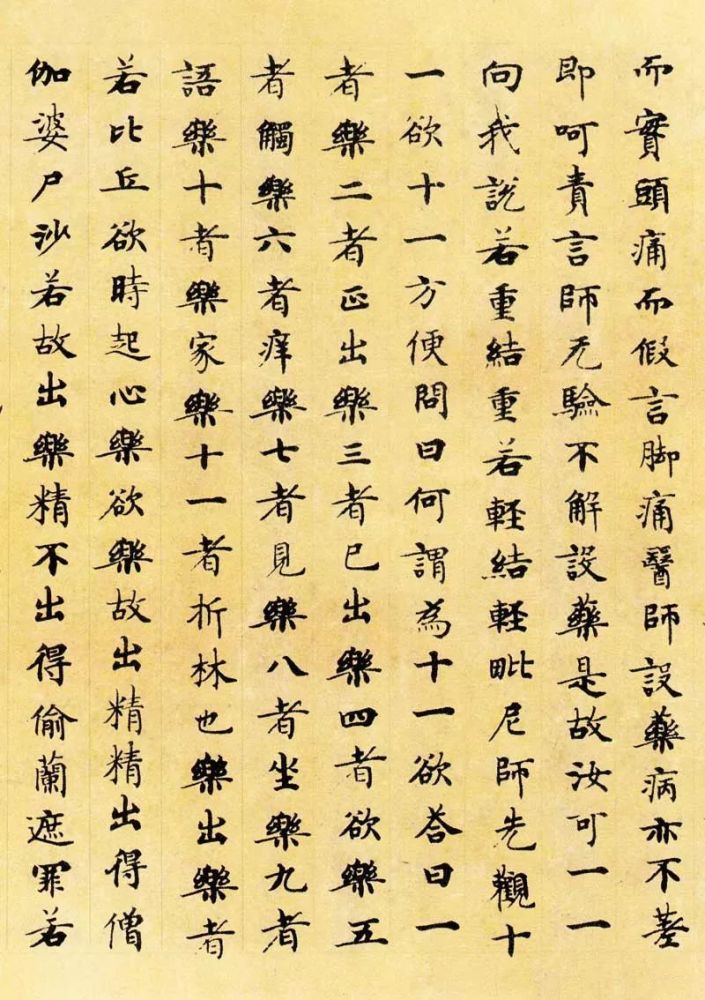 而實頭痛而假言脚痛醫師設藥病亦不差
即呵責言師无驗不解設藥是故汝可一一
向我説若重結重若軽結軽毗尼師先觀十
一欲十一方便問曰何謂為十一欲荅曰一
者樂二者正出樂三者已出樂四者欲樂五
者觸樂六者痒樂七者見樂八者坐樂九者
語樂十者樂家樂十一者折林也樂出樂者
若比丘欲時起心樂欲樂故出精精出得僧
伽婆尸沙若故出樂精不出得偷蘭遮罪若